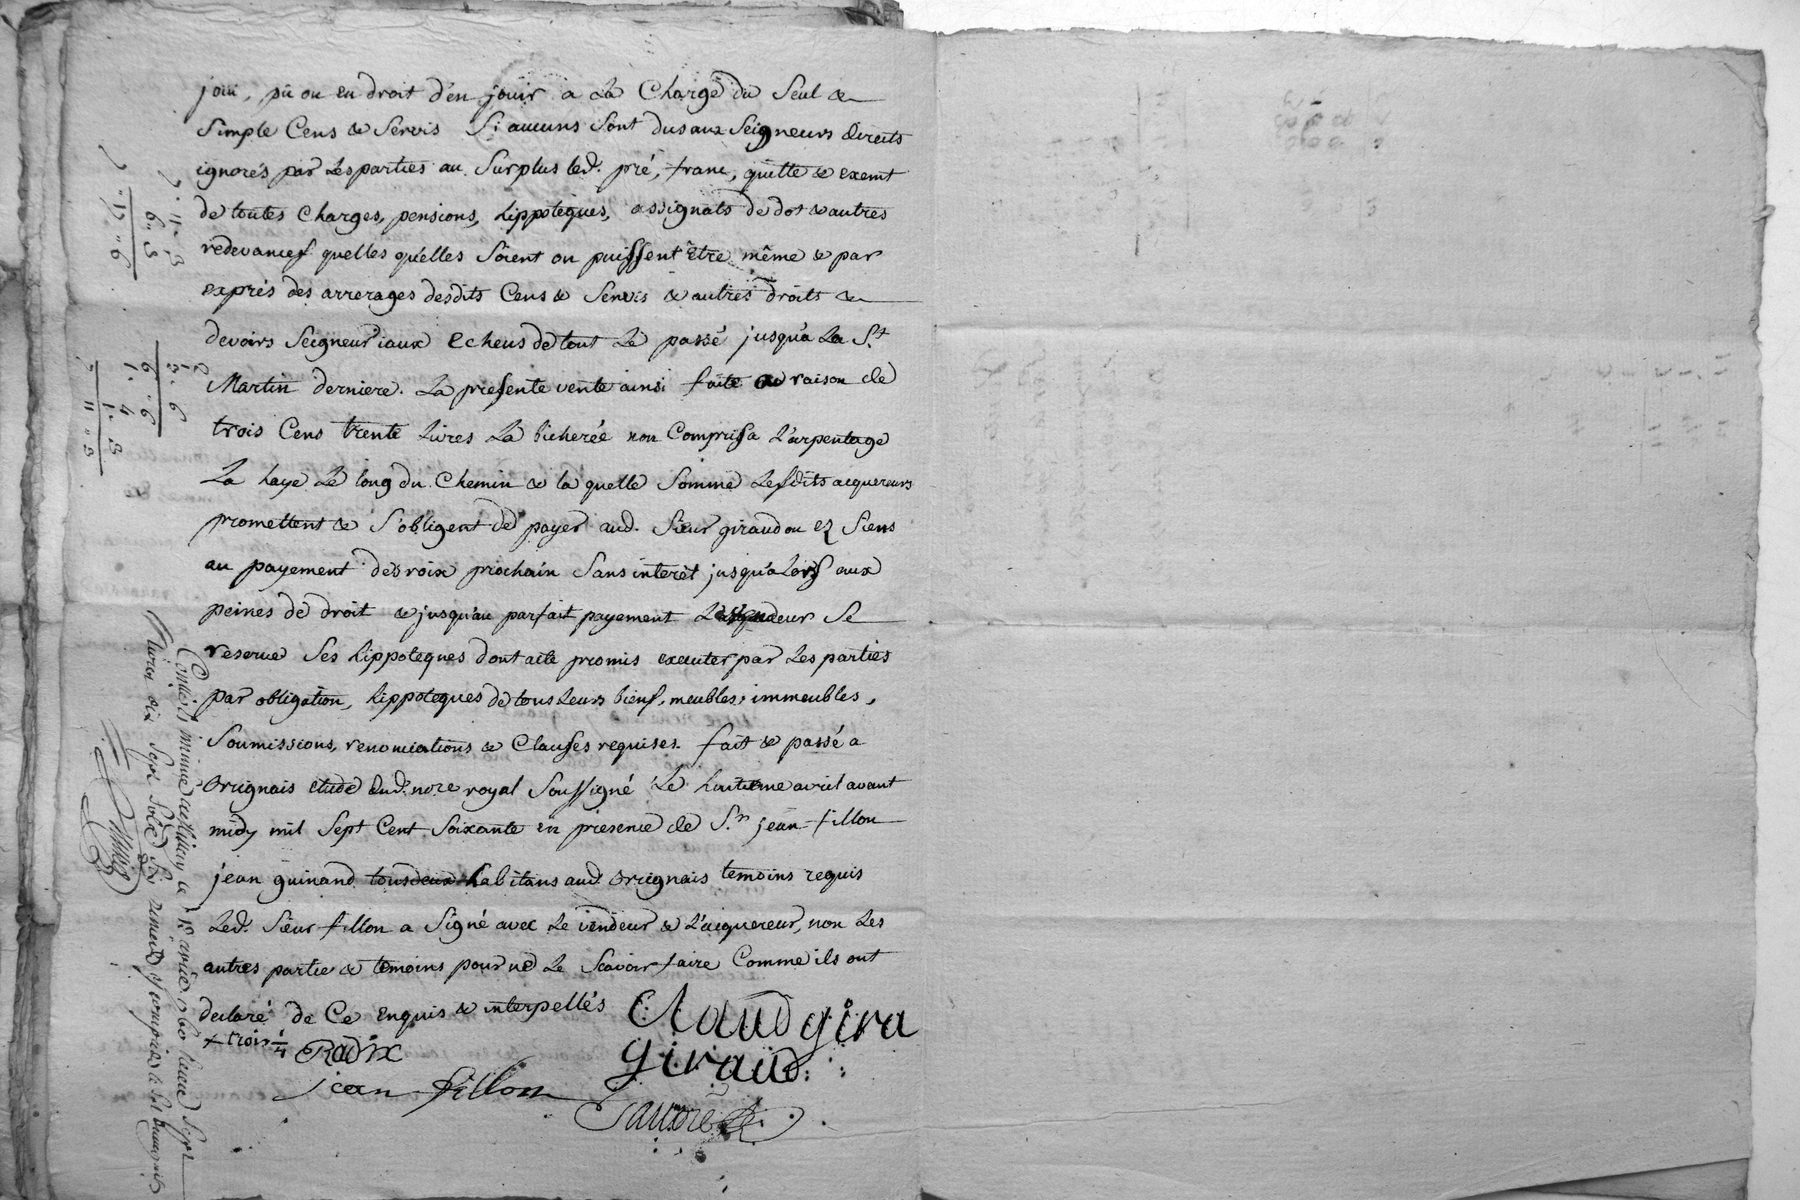 joui, pû ou eu droit d'en jouir a La Charge du Seul &
Simple Cens & Servis Si aucuns Sont dus aux Seigneurs directs
ignorés par Les parties au Surplus led. pré, franc, quitte & exemt
de toutes Charges, pensions, hippoteques, assignats de dot & autres
redevances quelles qu'elles Soient ou puissent être même & par
exprés des arrerages desdits Cens & Servis & autres droits &
devoirs Seigneuriaux Echeus de tout Le passé jusqu'a La St
Martin derniere. La presente vente ainsi faite a raison de
trois Cens trente Livres La bicherée non Compris a L'arpentage
La haye Le long du Chemin & la quelle Somme Lesdits acquereurs
promettent & S'obligent de payer aud. Sieur giraud ou ez Siens
au payement des roix prochain Sans interêt jusqu'a Lors aux
peines de droit & jusqu'au parfait payement Le vendeur Se
reserve Ses hippoteques dont acte promis executer par Les parties
par obligation, hippoteques de tous Leurs biens, meubles, immeubles,
Soumissions, renonciations & Clauses requises. fait & passé a
Orignais etude dud. nore royal Soussigné Le huitieme avril avant
midy mil Sept Cent Soixante en presence de Sr. jean fillon
jean guinand tous deux habitans aud. Orignais temoins requis
Led. Sieur fillon a Signé avec Le vendeur & L'acquereur, non Les
autres partie & temoins pour ne Le Scavoir faire Comme ils ont
declaré de Ce Enquis & interpellés
+ trois 1/4
Radix
Claud gira
giraud
jean fillon